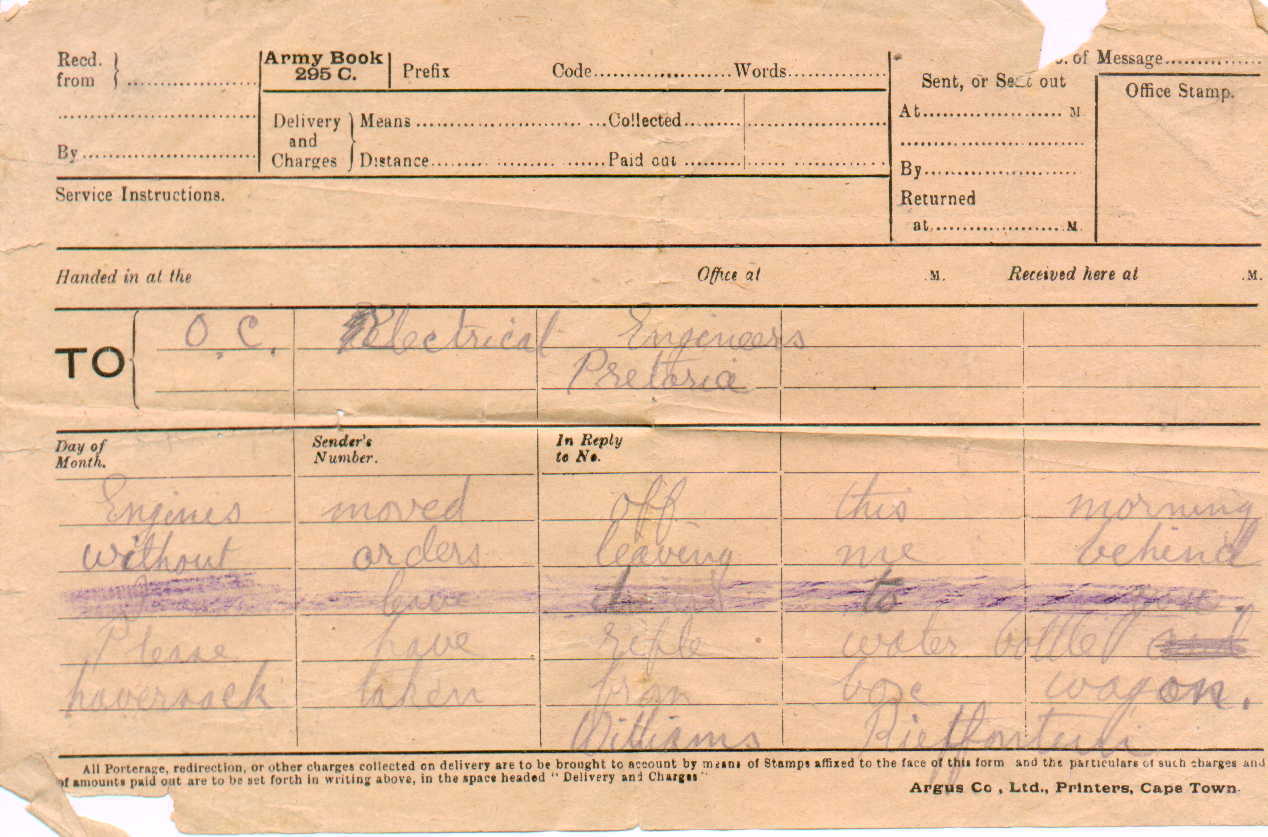 Recd. from
By
Army Book 295 C.
Prefix Code Words
Delivery and Charges
Means Collected
Distance Paid out
Sent, or Sent out
At M
By
Returned
at M.
of Message
Office Stamp.
Service Instructions.
Handed in at the Office at .M. Received here at .M.
TO
O.C. Electrical Engineers
Pretoria
Day of Month. Sender's Number. In Reply to No.
Engines moved off this morning
without orders leaving me behind
to
Please have rifle water bottle and
haversack taken from box wagon.
Williams Rieffontein
All Porterage, redirection, or other charges collected on delivery are to be brought to account by means of Stamps affixed to the face of this form and the particulars of such charges and
of amounts paid out are to be set forth in writing above, in the space headed "Delivery and Charges"
Argus Co., Ltd., Printers, Cape Town.